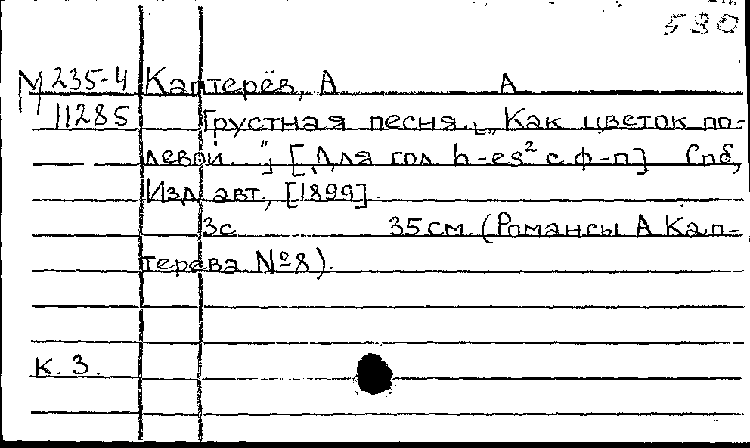 530
М 235-4 Каптерёв, А А
11285 Грустная песня. ["Как цветок по-
левой..."] [Для гол. h-es² с ф-п] Спб,
Изд. авт., [1899].
3с 35 см. (Романсы А Кап-
терева №8).
К. З.